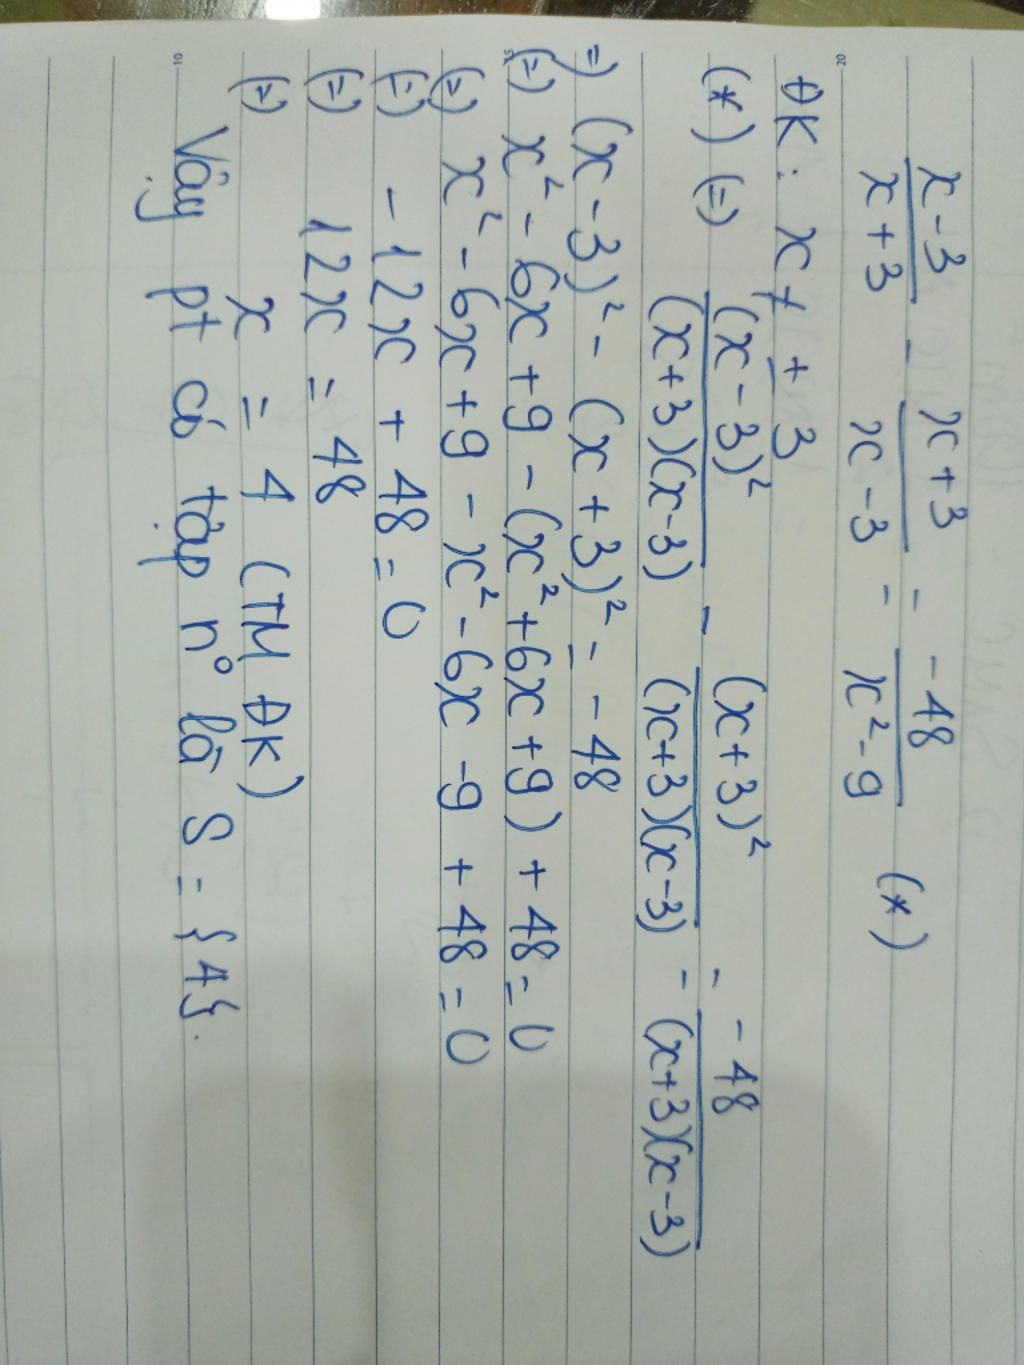 x-3/x+3 - x+3/x-3 = -48/x²-9 (*)
ĐK: x ≠ ±3
(*) (=) (x-3)²/(x+3)(x-3) - (x+3)²/(x+3)(x-3) = -48/(x+3)(x-3)
=) (x-3)² - (x+3)² = -48
(=) x² - 6x + 9 - (x² + 6x + 9) + 48 = 0
(=) x² - 6x + 9 - x² - 6x - 9 + 48 = 0
(=) -12x + 48 = 0
(=) 12x = 48
(=) x = 4 (TM ĐK)
Vậy pt có tập n° là S = {4}.
20
15
10